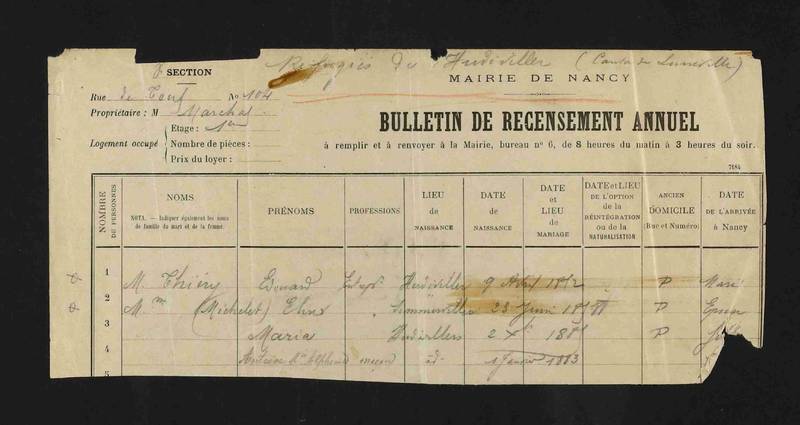 SECTION
Réfugiés de Hudiviller (Canton de Lunéville)
MAIRIE DE NANCY
Rue de Toul No 104
Propriétaire : M Marchal
BULLETIN DE RECENSEMENT ANNUEL
Logement occupé
Etage : 1er
Nombre de pièces :
Prix du loyer :
à remplir et à renvoyer à la Mairie, bureau no 6, de 8 heures du matin à 3 heures du soir.
7184
NOMBRE DE PERSONNES
NOMS
NOTA. — Indiquer également les noms de famille du mari et de la femme.
PRÉNOMS
PROFESSIONS
LIEU de NAISSANCE
DATE de NAISSANCE
DATE et LIEU de MARIAGE
DATE et LIEU DE L'OPTION de la RÉINTÉGRATION ou de la NATURALISATION
ANCIEN DOMICILE (Rue et Numéro)
DATE DE L'ARRIVÉE à Nancy
1 M. Thiéry Edouard Hudiviller 9 Avril P
2 Mme (Michelet) Sommerviller 23 Juin P
3 Maria Hudivillers 2 P
4 maçon id- 1883
5